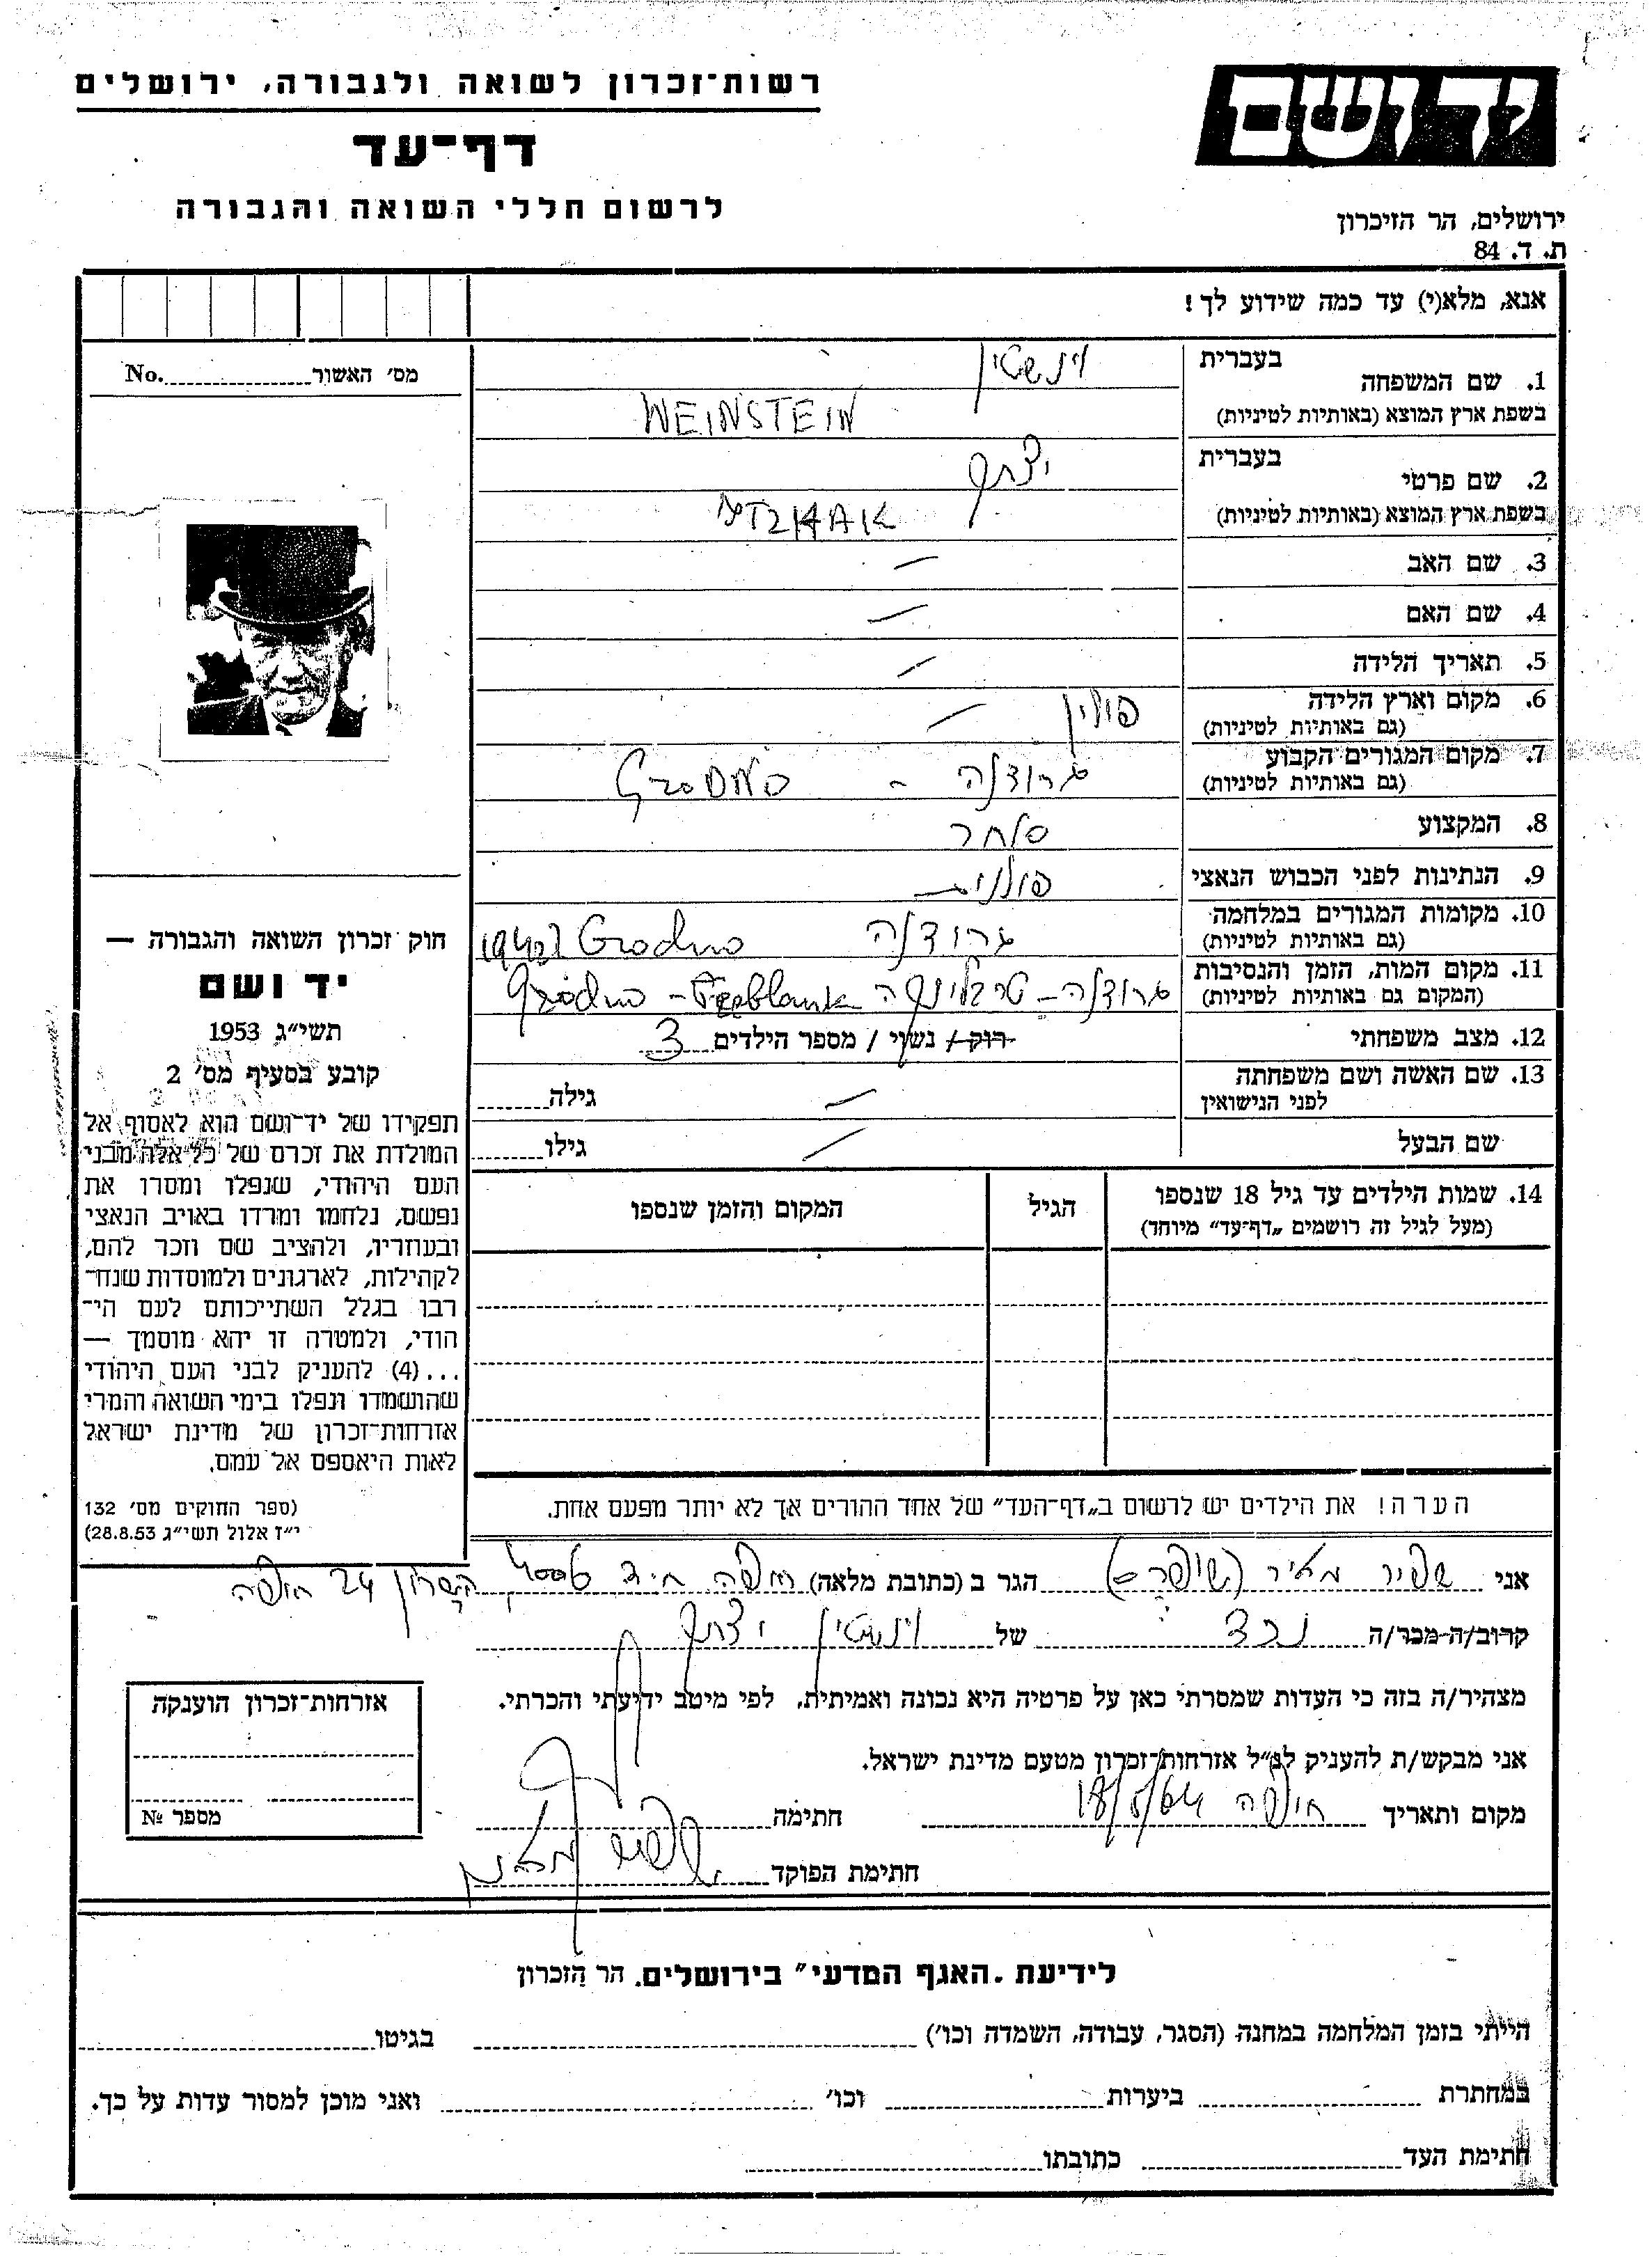 רשות־זכרון לשואה ולגבורה, ירושלים
דף־עד
לרשום חללי השואה והגבורה
ידושם
ירושלים, הר הזיכרון
ת. ד. 84
אנא, מלא(י) עד כמה שידוע לך!
מס׳ האשור No.
1. שם המשפחה
בעברית
וינשטין
בשפת ארץ המוצא (באותיות לטיניות)
WEINSTEIN
2. שם פרטי
בעברית
יצחק
בשפת ארץ המוצא (באותיות לטיניות)
ITZHAK
3. שם האב —
4. שם האם —
5. תאריך הלידה —
6. מקום וארץ הלידה
(גם באותיות לטיניות)
פולין —
7. מקום המגורים הקבוע
(גם באותיות לטיניות)
גרודנה - GRODNO
8. המקצוע
סוחר
9. הנתינות לפני הכבוש הנאצי
פולנית
10. מקומות המגורים במלחמה
(גם באותיות לטיניות)
גרודנה Grodno 1942
11. מקום המות, הזמן והנסיבות
(המקום גם באותיות לטיניות)
גרודנה - טרבלינקה Grodno -
12. מצב משפחתי
רוק / נשוי / מספר הילדים 3
13. שם האשה ושם משפחתה
לפני הנישואין
— גילה
שם הבעל — גילו
14. שמות הילדים עד גיל 18 שנספו
(מעל לגיל זה רושמים „דף־עד״ מיוחד)
הגיל
המקום והזמן שנספו
הערה! את הילדים יש לרשום ב„דף־העד״ של אחד ההורים אך לא יותר מפעם אחת.
חוק זכרון השואה והגבורה —
יד ושם
תשי״ג 1953
קובע בסעיף מס׳ 2
תפקידו של יד־ושם הוא לאסוף אל
המולדת את זכרם של כל אלה מבני
העם היהודי, שנפלו ומסרו את
נפשם, נלחמו ומרדו באויב הנאצי
ובעוזריו, ולהציב שם וזכר להם,
לקהילות, לארגונים ולמוסדות שנח־
רבו בגלל השתייכותם לעם הי־
הודי, ולמטרה זו יהא מוסמך —
...(4) להעניק לבני העם היהודי
שהושמדו ונפלו בימי השואה והמרי
אזרחות־זכרון של מדינת ישראל
לאות היאספם אל עמם.
(ספר החוקים מס׳ 132
י״ז אלול תשי״ג 28.8.53)
אני שפיר מאיר הגר ב (כתובת מלאה) חיפה 24 חיפה
קרוב/ה־מכר/ה נכד של וינשטין יצחק
מצהיר/ה בזה כי העדות שמסרתי כאן על פרטיה היא נכונה ואמיתית, לפי מיטב ידיעתי והכרתי.
אני מבקש/ת להעניק לנ״ל אזרחות־זכרון מטעם מדינת ישראל.
מקום ותאריך חיפה
חתימה
חתימת הפוקד
אזרחות־זכרון הוענקה
מספר №
לידיעת „האגף המדעי״ בירושלים. הר הזכרון
הייתי בזמן המלחמה במחנה (הסגר, עבודה, השמדה וכו׳) בגיטו
במחתרת ביערות וכו׳ ואני מוכן למסור עדות על כך.
חתימת העד כתובתו